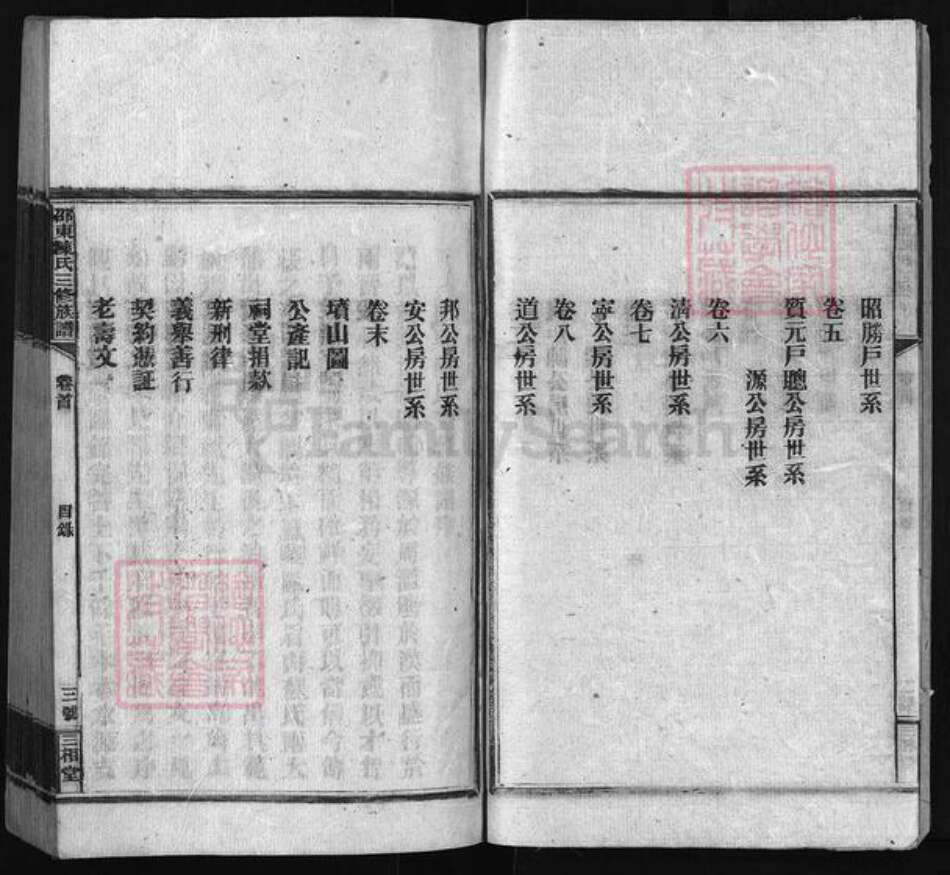 昭勝戸世系
卷五
賀元戸聰公房世系
源公房世系
卷六
濟公房世系
卷七
寧公房世系
卷八
道公房世系
邦公房世系
安公房世系
卷末
墳山圖
公產記
祠堂捐款
新刑律
義舉善行
契約憑証
老壽文
邵東陳氏三修族譜
卷首
目錄
三號
三相堂
FamilySearch